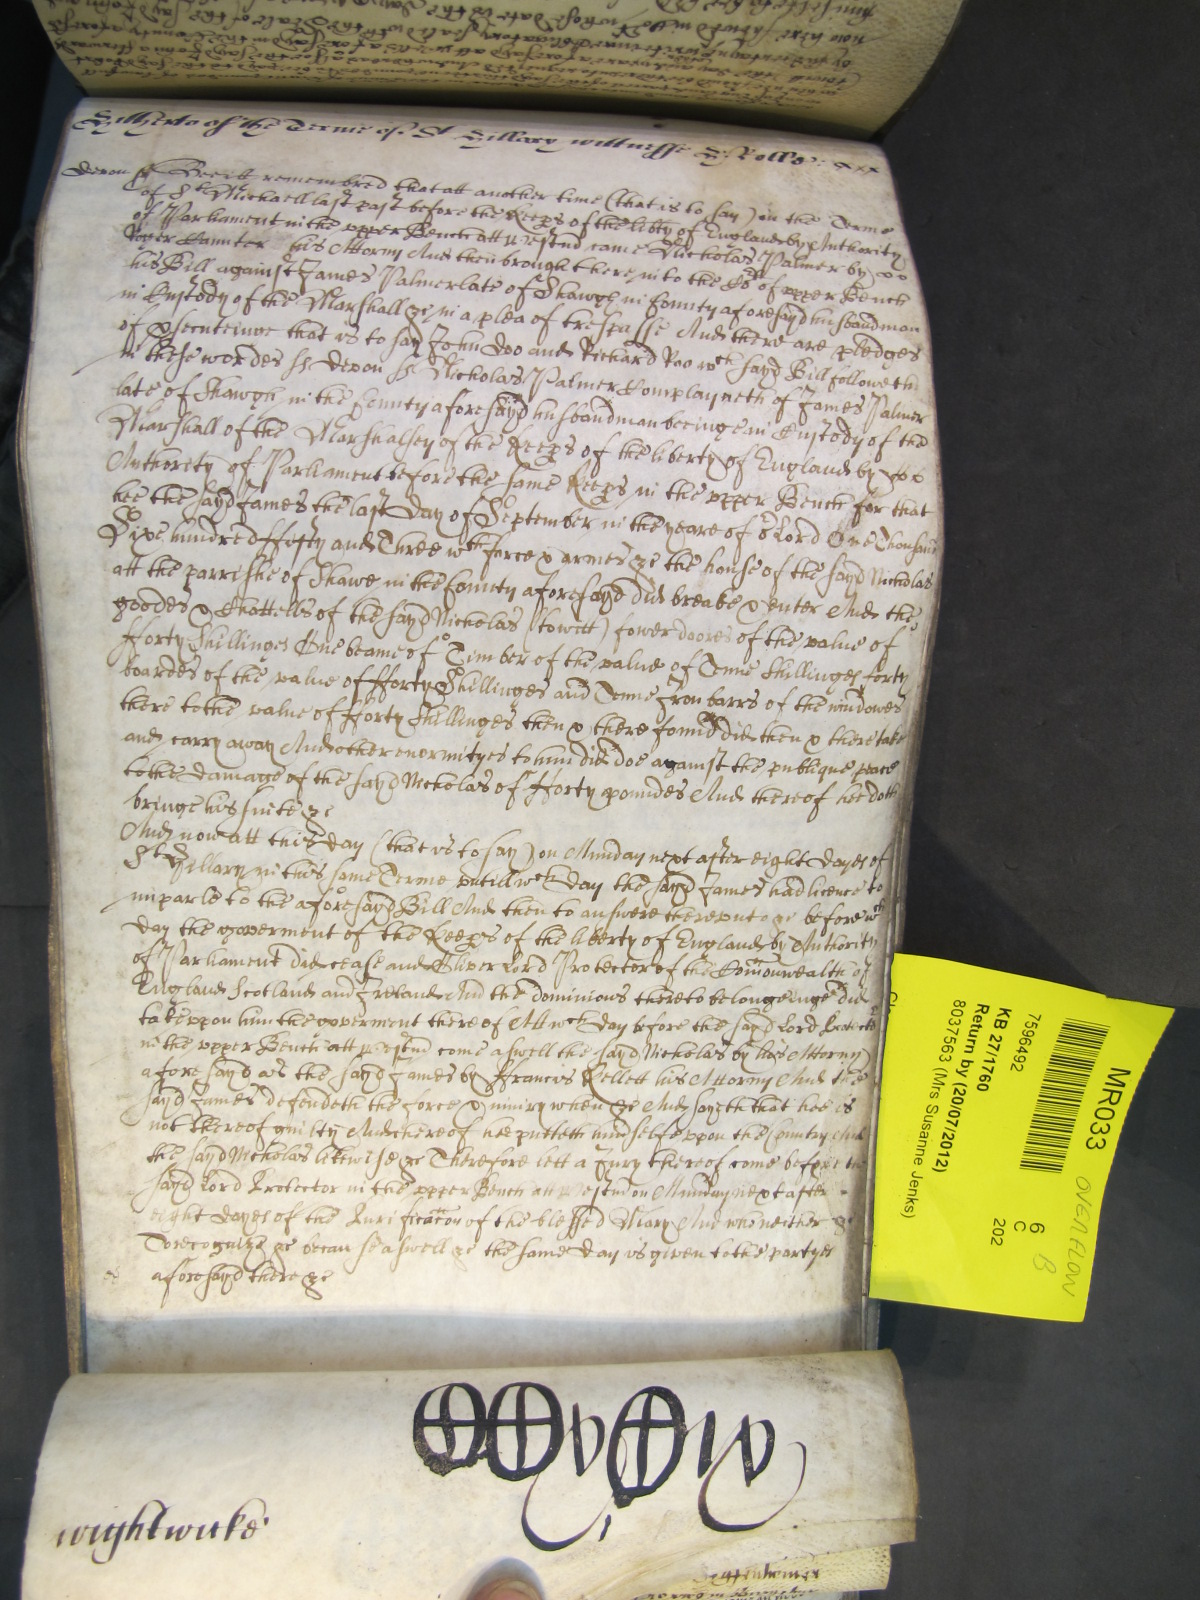 Hitherto of the Terme of St Hillary wittnesse H: Rolle: xxx
Devon ss Bee itt remembred that att another time (that is to say) in the Terme
of St Michaell last past before the Keeps of the libty of England by Authority
of Parliament in the upper Bench att Westm came Nicholas Palmer by
his Attorny And then brought here into the Ct of upper Bench
his Bill against James Palmer late of Shawgh in County aforesayd husbandman
in Custody of the Marshall &c in a plea of trespasse And there are pledges
of psecuteinge that is to say John Doo and Richard Roo wch sayd Bill followeth
in these wordes ss Devon ss Nicholas Palmer Complayneth of James Palmer
late of Shawgh in the County aforesayd husbandman beeinge in Custody of the
Marshall of the Marshalsey of the Keeps of the liberty of England by
Authority of Parliament before the same Keeps in the upper Bench for that
hee the sayd James the last day of September in the yeare of or Lord One Thousand
Sixe hundred ffifty and Three wth force & armes &c the house of the sayd Nicholas
att the parrishe of Shawe in the County aforesayd did breake & enter And the
goodes & Chattells of the sayd Nicholas (towitt) fower doores of the value of
fforty Shillinges One beame of Timber of the value of Tenne Shillinges forty
boardes of the value of fforty Shillinges and Tenne Iron barrs of the windowes
there to the value of fforty Shillinges then & there found did then & there take
and carry away And other enormityes to him did doe against the publique peace
to the damage of the sayd Nicholas of fforty poundes And thereof hee doth
bringe his suite &c
And now att this day (that is to say) on Munday next after eight dayes of
St Hillary in this same Terme untill wch day the sayd James had licence to
imparle to the aforesayd Bill And then to answere thereunto &c before wch
day the goverment of the Keeps of the liberty of England by Authority
of Parliament did cease and Oliver Lord Protector of the Comonwealth of
England Scotland and Ireland And the dominions thereto belongeinge did
take uppon him the goverment thereof Att wch day before the sayd Lord Protector
in the upper Bench att Westm come aswell the sayd Nicholas by his Attorny
aforesayd as the sayd James by Ffrancis Kellett his Attorny And the
sayd James defendeth the force & iniury when &c And sayth that hee is
not thereof guilty And thereof hee putteth himselfe uppon the Country And
the sayd Nicholas likewise &c Therefore lett a Jury thereof come before the
sayd Lord Protector in the upper Bench att Westm on Munday next after
eight dayes of the Purificacon of the blessed Mary And who neither &c
To recognize &c because aswell &c the same day is given to the partyes
aforesayd there &c
wightwicke
MR033
7596492
KB 27/1760
Return by (20/07/2012)
8037563 (Mrs Susanne Jenks)
6
C
202
OVERFLOW
B